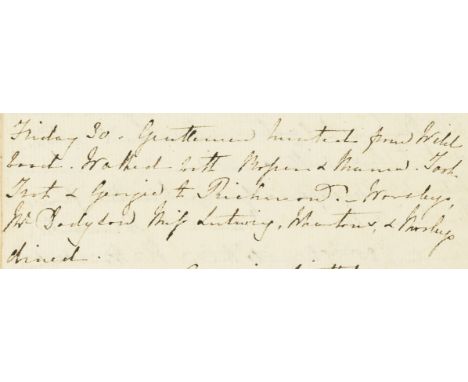 Friday 30. Gentlemen hunted from Wild
boat. Walked with Roper & Mama. Took
Toot & Georgie to Richmond. – Worsleys,
Mr Dodgson Miss Lutwig, Whartons, & Worleys
dined.